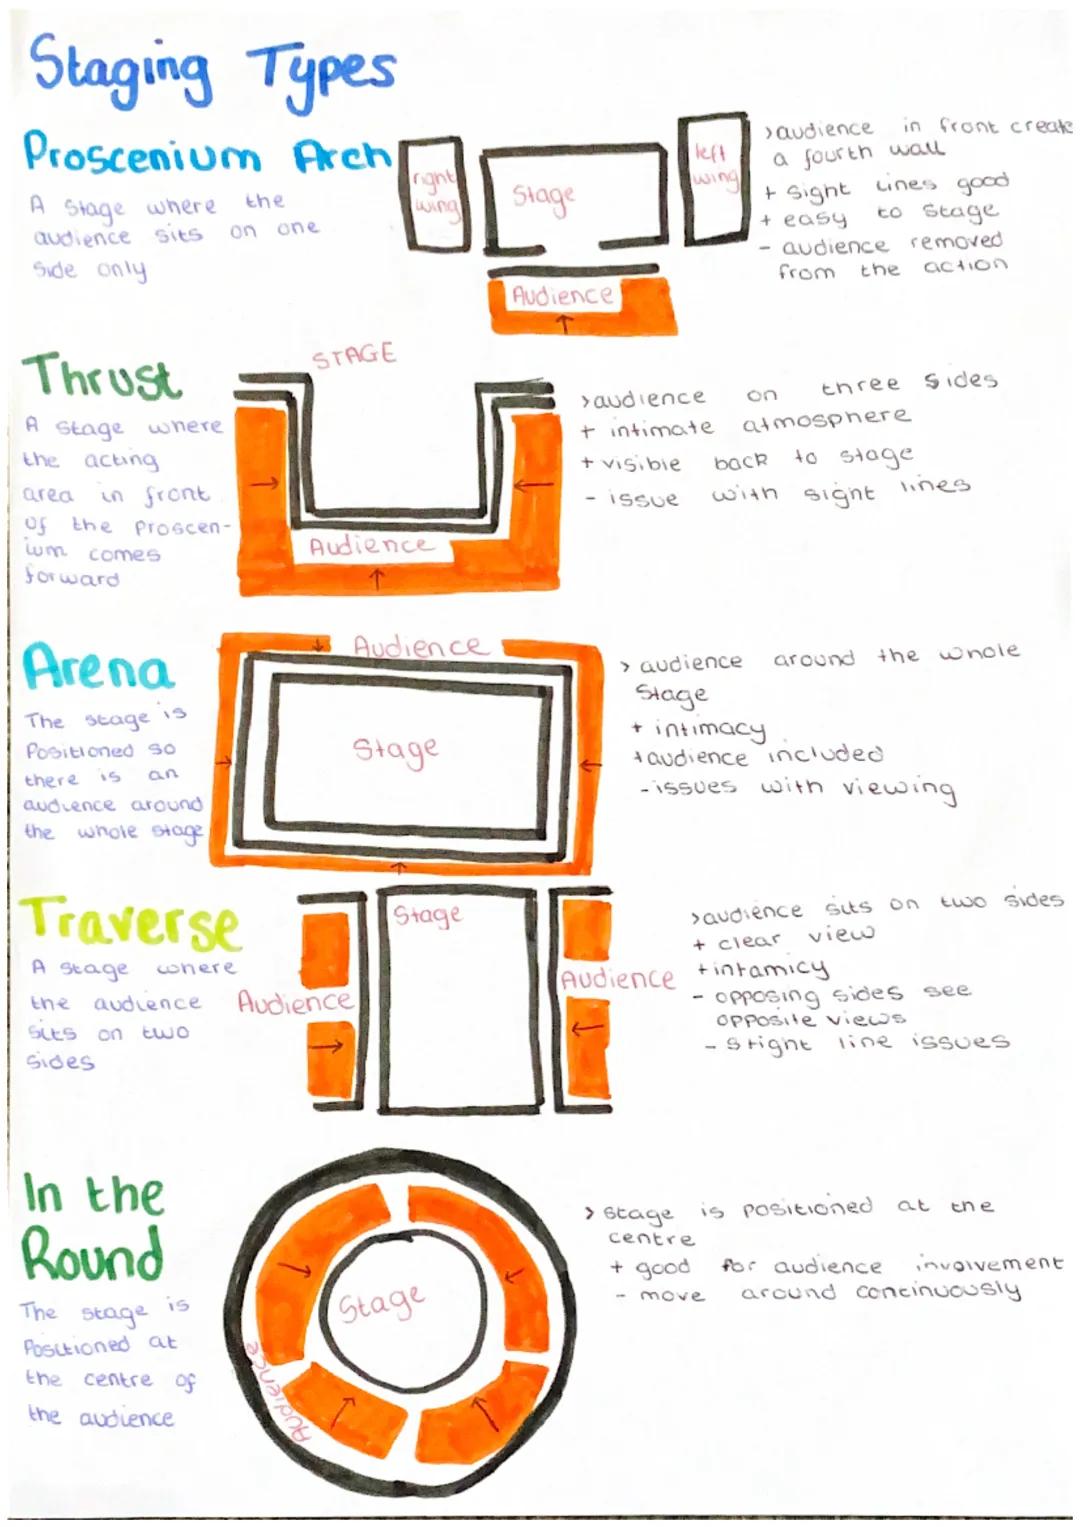 Staging Types
Proscenium Arch
A stage where the
audience sits on one
side only
right
wing
Stage
left
wing
Audience
>audience in front create
a fourth wall
+ sight lines good
+ easy to stage
- audience removed
from the action
Thrust
A stage where
the acting
area in front
of the proscen-
ium comes
forward
STAGE
Audience
>audience on three sides
+ intimate atmosphere
+ visible back to stage
- issue with sight lines
Arena
The stage is
Positioned so
there is an
audience around
the whole stage
Audience
Stage
> audience around the whole
Stage
+ intimacy
+audience included
-issues with viewing
Traverse
A stage where
the audience
sits on two
sides
Stage
Audience
Audience
>audience sits on two sides
+ clear view
+intamicy
- opposing sides see
opposite views
- stight line issues
In the
Round
The stage is
Positioned at
the centre of
the audience
Stage
Audience
> stage is positioned at the
centre
+ good for audience involvement
- move around continuously